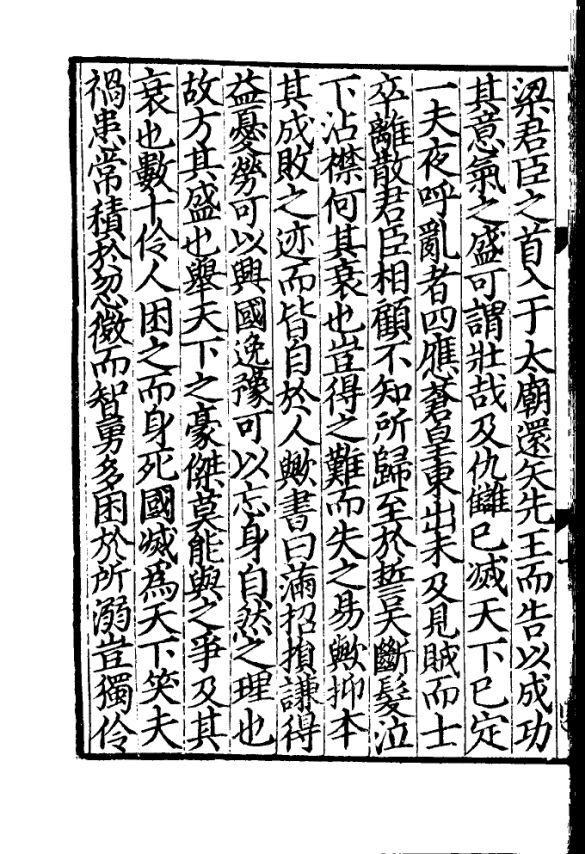 梁君臣之首入于太廟還矢先王而告以成功
其意氣之盛可謂壯哉及仇讎已滅天下已定
一夫夜呼亂者四應蒼皇東出未及見賊而士
卒離散君臣相顧不知所歸至於誓天斷髮泣
下沾襟何其衰也豈得之難而失之易歟抑本
其成敗之迹而皆自於人歟書曰滿招損謙得
益憂勞可以興國逸豫可以忘身自然之理也
故方其盛也舉天下之豪傑莫能與之爭及其
衰也數十伶人困之而身死國滅為天下笑夫
禍患常積於忽微而智勇多困於所溺豈獨伶